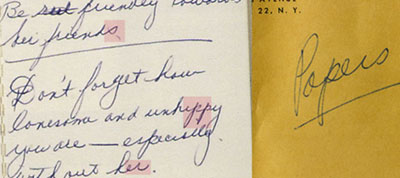 Be friendly towards
her friends
Don't forget how
lonesome and unhappy
you are — especially
without her.
22, N. Y.
Papers